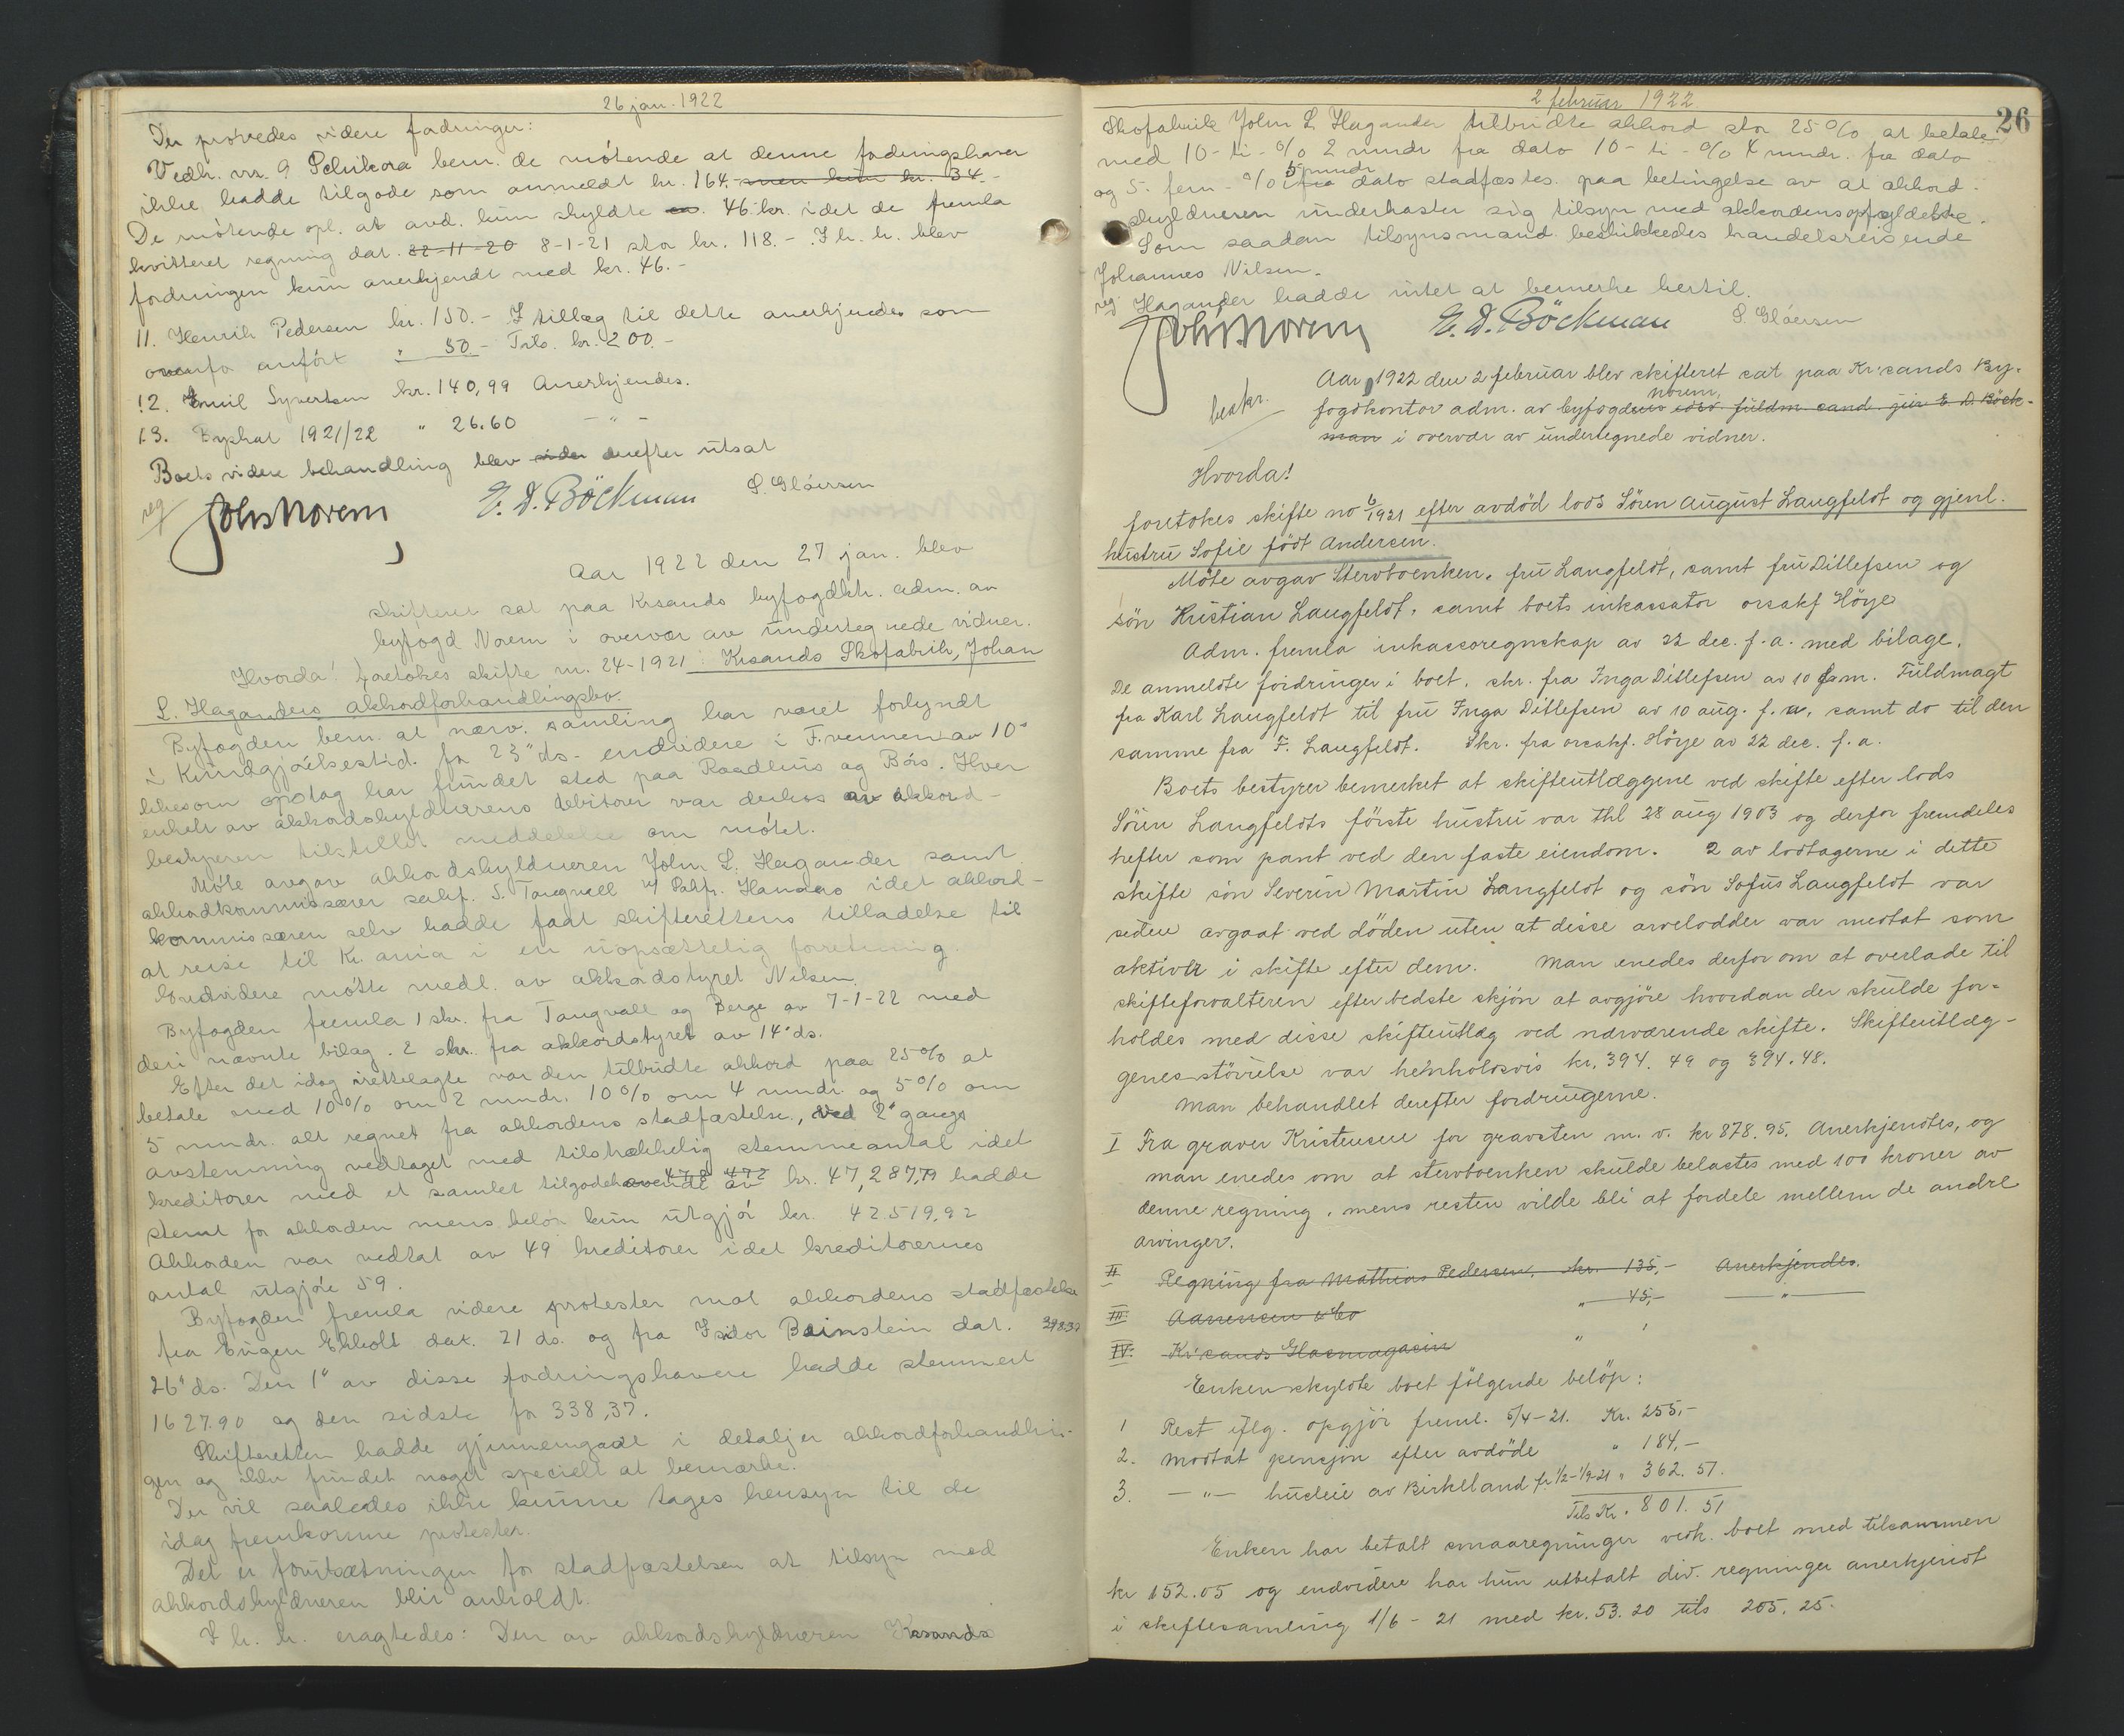 26 jan. 1922
Der prøvedes videre fordringer:
Vedk. nr. 9 Pelikora bem. de møtende at denne fordringshaver
ikke hadde tilgode som anmeldt kr. 164.- men kun kr. 34.-
De møtende opl. at avd. kun skyldte 46 kr. idet de fremla
kvitteret regning dat. 22-11-20 8-1-21 stor kr. 118.- I h. h. blev
fordringen kun anerkjendt med kr. 46.-
11. Henrik Pedersen kr. 150.- I tillæg til dette anerkjendes som
ovenfo anført " 50.- Tils. kr. 200.-
12. Emil Syvertsen kr. 140,99 Anerkjendes.
13. Byskat 1921/22 " 26.60 - " -
Boets videre behandling blev derefter utsat
reg
Johs Norem E. D. Böckman S. Glöersen
Aar 1922 den 27 jan. blev
skifteret sat paa Krsands byfogdkt. adm. av
byfogd Norem i overvær av undertegnede vidner.
Hvorda! foretokes skifte nr. 24-1921: Krsands Skofabrik, Johan
L. Haganders akkordforhandlingsbo.
Byfogden bem. at nærv. samling har været forkyndt
i Kundgjørelsestid. for 23" ds. endvidere i F.vennen av 10"
likesom opslag har fundet sted paa Raadhus og Børs. Hver
enkelt av akkordskyldnerens debitorer var derhos av akkord-
bestyreren tilstillet meddelelse om møtet.
Møte avgav akkordskyldneren John L. Hagander samt
akkordkommissærer sakf. S. Tangvall v/ Hanaas idet akkord-
kommissæren selv hadde faat skifterettens tilladelse til
at reise til Kr.ania i en uopsættelig forretning.
Endvidere møtte medl. av akkordstyret Nilsen.
Byfogden fremla 1 skr. fra Tangvall og Berge av 7-1-22 med
deri nævnte bilag. 2 skr. fra akkordstyret av 14" ds.
Efter det idag irettelagte var den tilbudte akkord paa 25% at
betale med 10% om 2 mndr. 10% om 4 mndr. og 5% om
5 mndr. alt regnet fra akkordens stadfæstelse, ved 2" gangs
avstemning vedtaget med tilstrækkelig stemmeantal idet
kreditorer med et samlet tilgodehavende av kr. 47,287,79 hadde
stemt for akkorden mens beløp kun utgjør kr. 42.519,92
Akkorden var vedtat av 49 kreditorer idet kreditorernes
antal utgjøre 59.
Byfogden fremla videre protester mot akkordens stadfæstelse
fra Eugen Ekholt dat. 21 ds. og fra Isidor Beinstein dat.
26" ds. Den 1" av disse fordringshavere hadde stemmeret
1627.90 og den sidste for 338,37.
Skifteretten hadde gjennemgaat i detaljer akkordforhandlin-
gen og ikke fundet noget specielt at bemærke.
Der vil saaledes ikke kunne tages hensyn til de
idag fremkomne protester.
Det er forutsætningen for stadfæstelsen at tilsyn med
akkordskyldneren blir anholdt.
I h. h. eragtedes: Den av akkordskyldneren Krsands
2 februar 1922
26
Skofabrik John L Hagander tilbudte akkord stor 25% at betale
med 10-ti-% 2 mndr fra dato 10-ti-% 4 mndr. fra dato
og 5. fem-% 5 mndr fra dato stadfæstes paa betingelse av at akkord-
skyldneren underkaster sig tilsyn med akkordens opfyldelse.
Som saadan tilsynsmand beskikkedes handelsreisende
Johannes Nilsen.
Hagander hadde intet at bemerke hertil.
reg.
Johs Norem E. D. Böckman S. Glöersen
beskr.
Aar 1922 den 2 februar blev skifteret sat paa Kr.sands By-
fogdkontor adm. av byfogdens edsv. fuldm. cand. jur E. D. Böck-
Norem,
man i overvær av undertegnede vidner.
Hvorda!
foretokes skifte no 6/1921 efter avdöd lods Sören August Langfeldt og gjenl.
hustru Sofie födt Andersen.
Möte avgav Stervboenken, fru Langfeldt, samt fru Ditlefsen og
sön Kristian Langfeldt, samt boets inkassator orsakf Höye
Adm. fremla inkassoregnskap av 22 dec. f. a. med bilage.
De anmeldte fordringer i boet. skr. fra Inga Ditlefsen av 10 ds m. Fuldmagt
fra Karl Langfeldt til fru Inga Ditlefsen av 10 aug. f. a. samt do til den
samme fra F. Langfeldt. Skr. fra orsakf. Höye av 22 dec. f. a.
Boets bestyrer bemerket at skifteutlæggene ved skifte efter lods
Sören Langfeldts förste hustru var thl 28 aug 1903 og derfor fremdeles
hefter som pant ved den faste eiendom. 2 av lodtagerne i dette
skifte sön Severin Martin Langfeldt og sön Sofus Langfeldt var
siden avgaat ved döden uten at disse arvelodder var medtat som
aktiver i skifte efter dem. Man enedes derfor om at overlade til
skifteforvalteren efter bedste skjön at avgjöre hvordan der skulde for-
holdes med disse skifteutlæg ved nærværende skifte. Skifteutlæg-
genes störrelse var henholdsvis kr. 394. 49 og 394. 48.
Man behandlet derefter fordringerne.
I Fra graver Kristensen for gravsten m. v. kr 878. 95. Anerkjendtes, og
man enedes om at stervboenken skulde belastes med 100 kroner av
denne regning, mens resten vilde bli at fordele mellem de andre
arvinger.
II Regning fra Mathias Pedersen. kr. 135,- Anerkjendes.
III Aanensen & Co " 45,- - " -
IV. Kr.sands Glasmagasin " '
Enken skyldte boet fölgende belöp:
1 Rest iflg. opgjör freml. 5/4-21. Kr. 255,-
2. Mottat pension efter avdöde " 184,-
3. - " - husleie av Birkeland fr 1/2-1/9-21 " 362. 51.
Tils Kr. 801. 51
Enken har betalt smaaregninger vedk. boet med tilsammen
kr 152.05 og endvidere har hun utbetalt div. regninger anerkjendt
i skiftesamling 1/6 - 21 med kr. 53. 20 tils 205. 25.